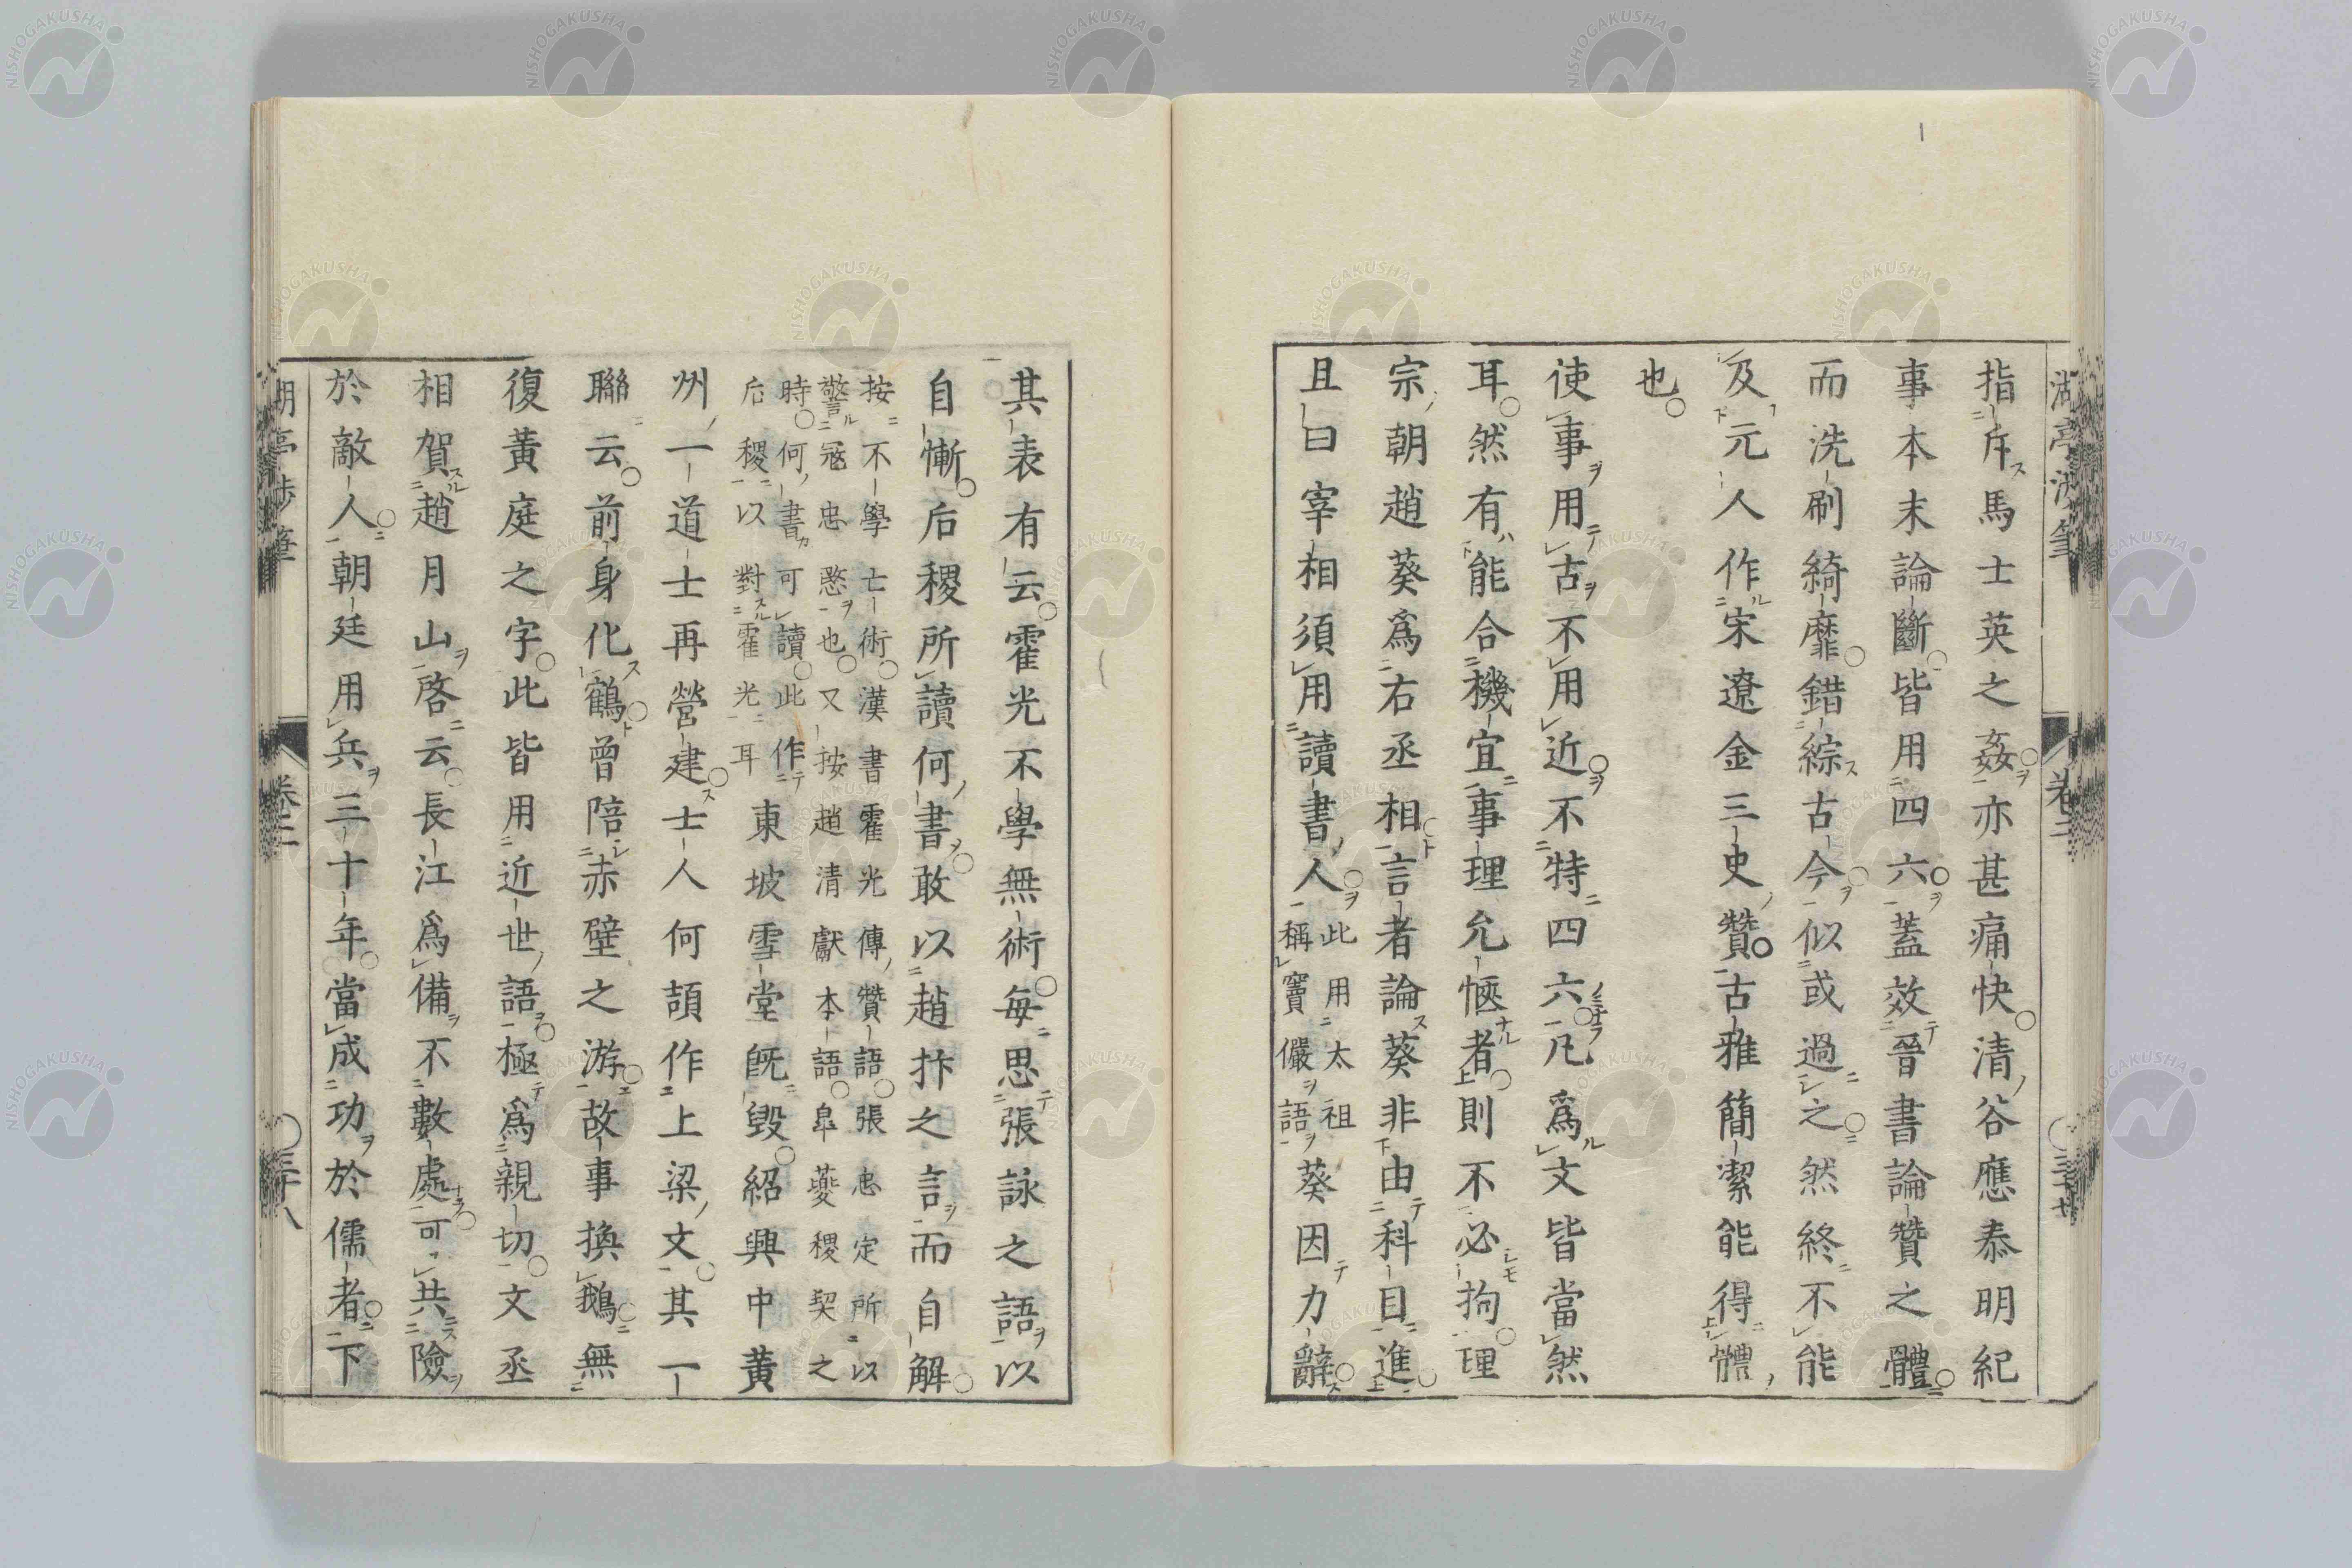 湖亭涉筆
卷二
指斥馬士英之姦亦甚痛快清谷應泰明紀
事本末論斷皆用四六蓋效晉書論贊之體
而洗刷綺靡錯綜古今似或過之然終不能
及元人作宋遼金三史贊古雅簡潔能得體
也
使事用古不用近不特四六凡為文皆當然
耳然有能合機宜事理允愜者則不必拘理
宗朝趙葵為右丞相言者論葵非由科目進
且曰宰相須用讀書人此用太祖
稱竇儼語葵因力辭
其表有云霍光不學無術每思張詠之語以
自慚后稷所讀何書敢以趙抃之言而自解
按不學亡術漢書霍光傳贊語張忠定所以
警冦忠愍也又按趙清獻本語皐夔稷契之
時何書可讀此作
后稷以對霍光耳
東坡雪堂既毀紹興中黃
州一道士再營建士人何頡作上梁文其一
聯云前身化鶴曾陪赤壁之游故事換鵝無
復黃庭之字此皆用近世語極為親切文丞
相賀趙月山啓云長江為備不數處可共險
於敵人朝廷用兵三十年當成功於儒者下
湖亭涉筆
卷二
三十八
NISHOGAKUSHA